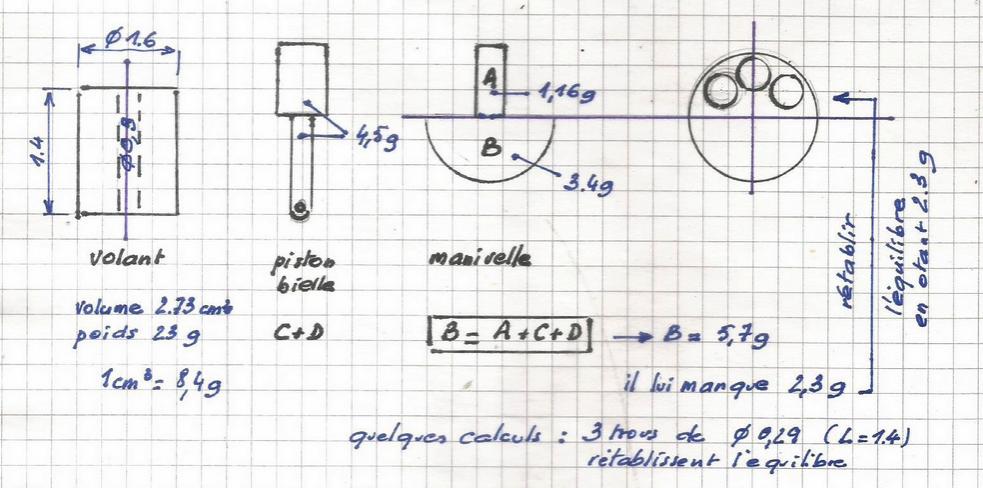 Ø 1.6
1.4
Ø 0,3
volant
volume 2.73 cm³
poids 23 g
1cm³ = 8,4g
4,5g
piston
bielle
C+D
A
1,16g
B
3.4g
manivelle
B = A+C+D → B = 5,7g
il lui manque 2,3g
rétablir
l'équilibre
en otant 2.3 g
quelques calculs : 3 trous de Ø 0,29 (L=1.4)
rétablissent l'equilibre